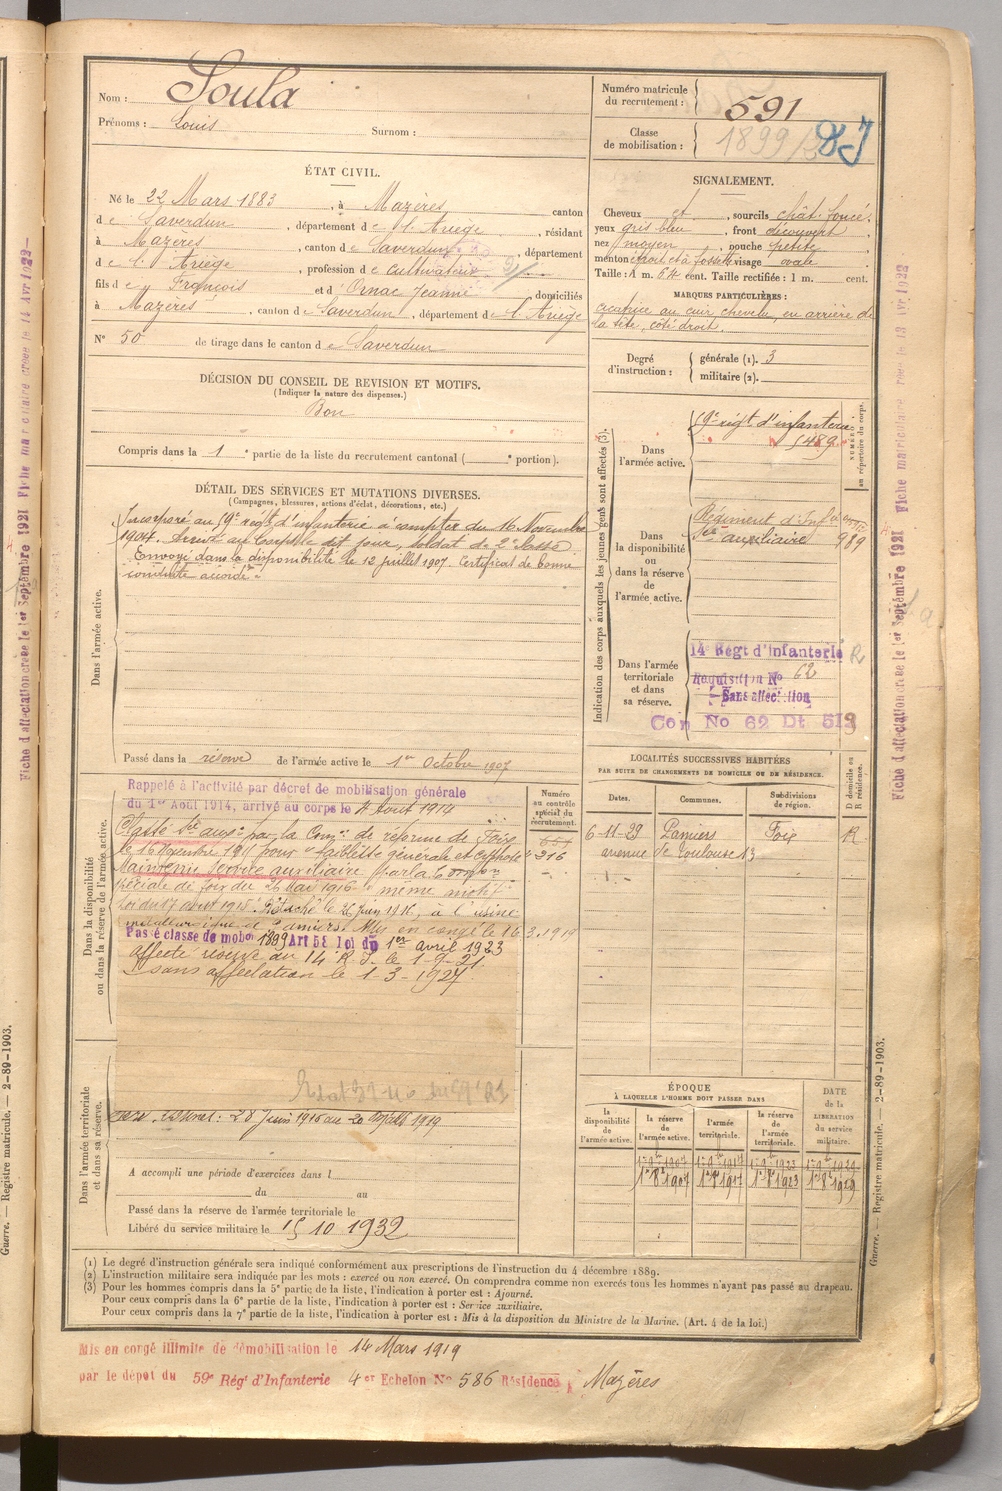 Nom : Soula
Prénoms : Louis Surnom :
Numéro matricule du recrutement : 591
Classe de mobilisation : 1899
ÉTAT CIVIL.
Né le 22 Mars 1883, à Mazères canton
de Saverdun, département de l'Ariège, résidant
à Mazères, canton de Saverdun, département
de l'Ariège, profession de cultivateur
fils de François et de Ornac Jeanne domiciliés
à Mazères, canton de Saverdun, département de l'Ariège
N° 50 de tirage dans le canton de Saverdun
SIGNALEMENT.
Cheveux et, sourcils chât. foncé,
yeux gris bleu, front découvert
nez moyen, bouche petite
menton droit et à fossette visage ovale
Taille : 1 m. 64 cent. Taille rectifiée : 1 m. cent.
MARQUES PARTICULIÈRES :
cicatrice au cuir chevelu, en arrière de
la tête, côté droit.
Degré d'instruction : générale (1). 3
militaire (2).
DÉCISION DU CONSEIL DE REVISION ET MOTIFS.
(Indiquer la nature des dispenses.)
Bon
Compris dans la 1e partie de la liste du recrutement cantonal ( e portion).
DÉTAIL DES SERVICES ET MUTATIONS DIVERSES.
(Campagnes, blessures, actions d'éclat, décorations, etc.)
Dans l'armée active.
Incorporé au 9e régt d'infanterie à compter du 16 Novembre
1904. Arrivé au corps le dit jour, soldat de 2e classe.
Envoyé dans la disponibilité le 12 juillet 1907. Certificat de bonne
conduite accordé.
Passé dans la réserve de l'armée active le 1er Octobre 1907
Indication des corps auxquels les jeunes gens sont affectés (3).
NUMÉRO au répertoire du corps.
Dans l'armée active.
9e régt d'infanterie
Dans la disponibilité ou dans la réserve de l'armée active.
Régiment d'Infie
Sce auxiliaire 989
Dans l'armée territoriale et dans sa réserve.
14e Régt d'Infanterie R
Réquisition No 62
Sans affection
Con No 62 Dt 513
Dans la disponibilité ou dans la réserve de l'armée active.
Rappelé à l'activité par décret de mobilisation générale
du 1er Août 1914, arrivé au corps le 4 Août 1914
Classé Sce auxre par la Comon de réforme de Foix
le 16 1915 pour "faiblesse générale et cyphose"
Maintenu Service auxiliaire par la Comon
spéciale de Foix du 26 Mai 1916 "même motif"
Loi du 17 août 1915. Détaché le 28 Juin 1916, à l'usine
métallurgique de Pamiers. Mis en congé le 16.3.1919
Passé classe de mobon 1899 Art 58 loi du 1er avril 1923
affecté réserve au 14 R.I. le 1-9-21
sans affectation le 1-3-1927
Numéro au contrôle spécial du recrutement.
216
LOCALITÉS SUCCESSIVES HABITÉES
PAR SUITE DE CHANGEMENTS DE DOMICILE OU DE RÉSIDENCE.
Dates. Communes. Subdivisions de région. D domicile ou R résidence.
6-11-29 Pamiers Foix R
avenue de Toulouse 13
Dans l'armée territoriale et dans sa réserve.
28 Juin 1916 au 20 Mars 1919
A accompli une période d'exercices dans l
du au
Passé dans la réserve de l'armée territoriale le
Libéré du service militaire le 15 10 1932
ÉPOQUE
À LAQUELLE L'HOMME DOIT PASSER DANS
la disponibilité de l'armée active. la réserve de l'armée active. l'armée territoriale. la réserve de l'armée territoriale. DATE de la LIBÉRATION du service militaire.
1907 1917 1923 1929
1907 1917 1923 1929
(1) Le degré d'instruction générale sera indiqué conformément aux prescriptions de l'instruction du 4 décembre 1889.
(2) L'instruction militaire sera indiquée par les mots : exercé ou non exercé. On comprendra comme non exercés tous les hommes n'ayant pas passé au drapeau.
(3) Pour les hommes compris dans la 5e partie de la liste, l'indication à porter est : Ajourné.
Pour ceux compris dans la 6e partie de la liste, l'indication à porter est : Service auxiliaire.
Pour ceux compris dans la 7e partie de la liste, l'indication à porter est : Mis à la disposition du Ministre de la Marine. (Art. 4 de la loi.)
Mis en congé illimité de démobilisation le 14 Mars 1919
par le dépôt du 59e Régt d'Infanterie 4er Echelon No 586 Résidence à Mazères
Guerre. — Registre matricule. — 2-89-1903.
Guerre. — Registre matricule. — 2-89-1903.
Fiche d'affectation créée le 1er Septembre 1921 Fiche matriculaire créée le 14 Avr 1922
Fiche d'affectation créée le 1er Septembre 1921 Fiche matriculaire créée le 13 Avr 1922